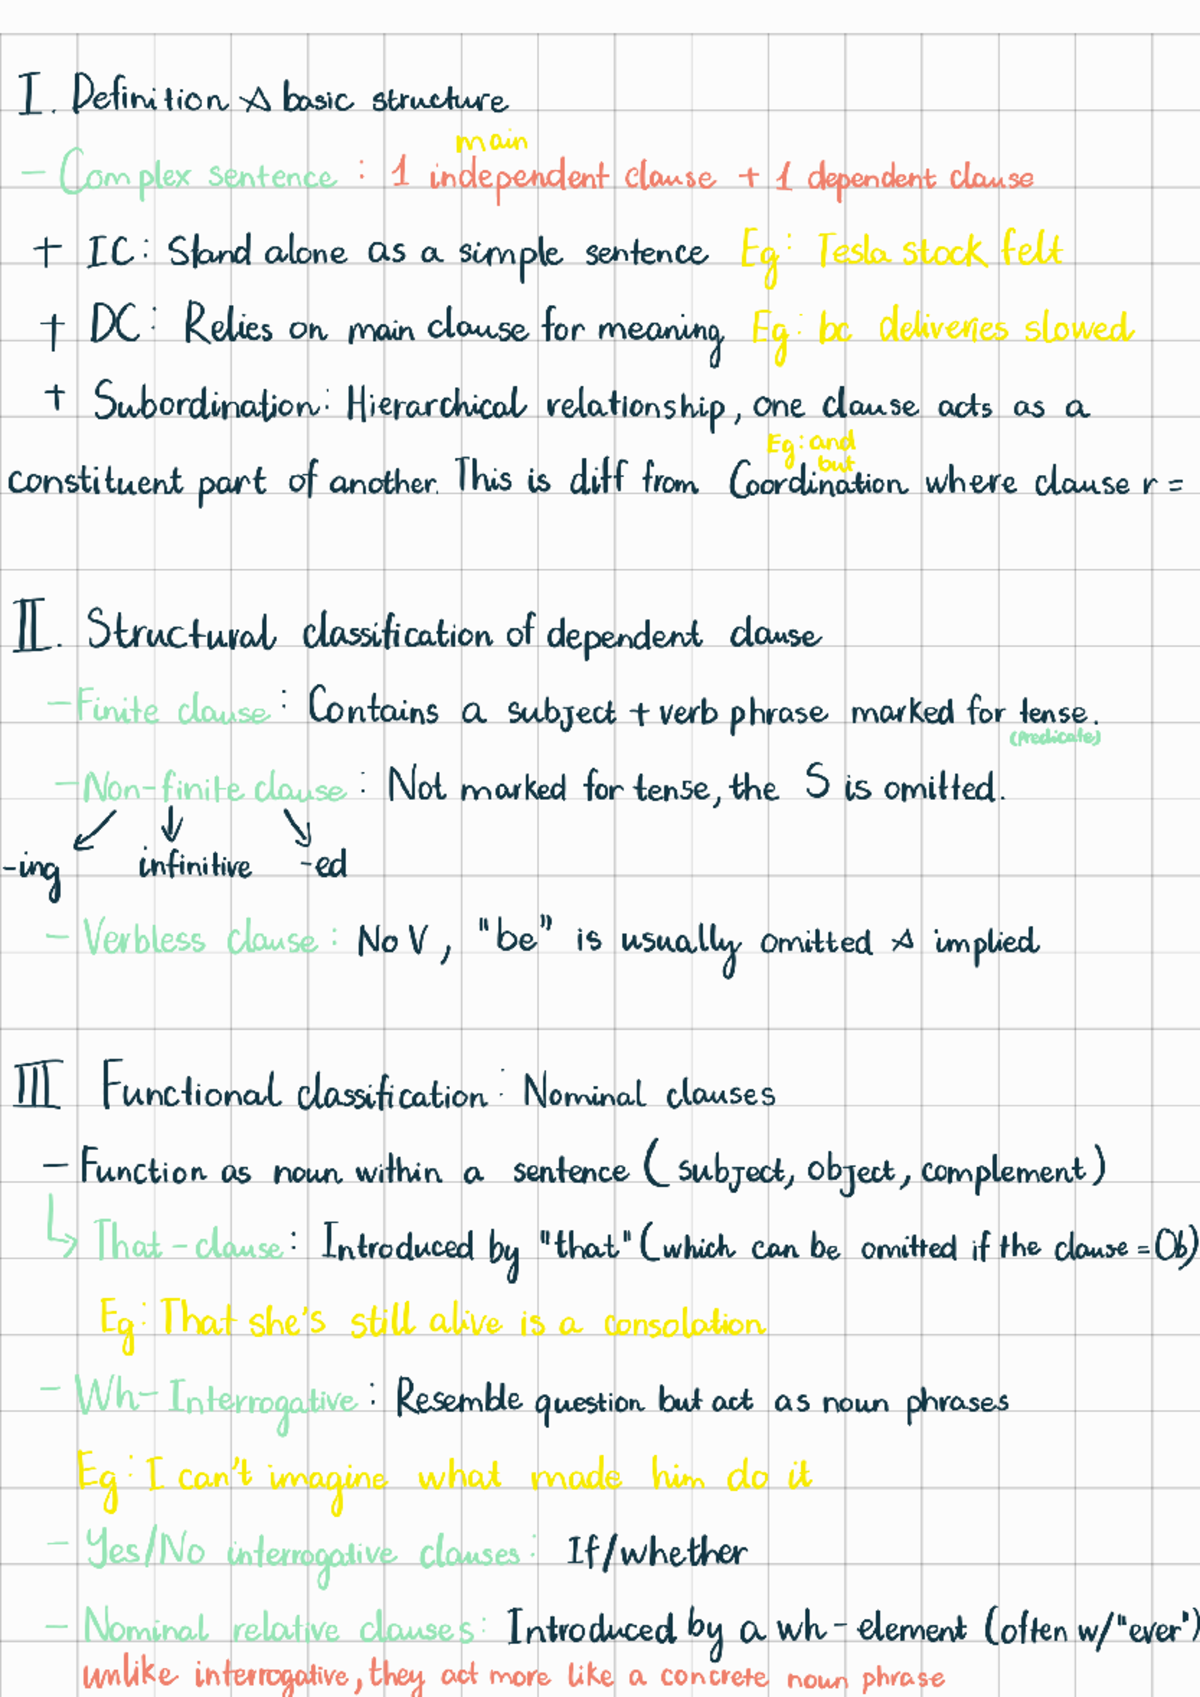 I. Definition & basic structure
main
- Complex sentence : 1 independent clause + 1 dependent clause
+ IC: Stand alone as a simple sentence Eg: Tesla stock felt
+ DC: Relies on main clause for meaning Eg: bc deliveries slowed
+ Subordination: Hierarchical relationship, one clause acts as a
Eg: and
but
constituent part of another. This is diff from Coordination where clause r =
II. Structural classification of dependent clause
- Finite clause: Contains a subject + verb phrase marked for tense.
(Predicate)
- Non-finite clause: Not marked for tense, the S is omitted.
-ing infinitive -ed
- Verbless clause: No V, "be" is usually omitted & implied
III Functional classification: Nominal clauses
- Function as noun within a sentence (subject, object, complement)
That-clause: Introduced by "that" (which can be omitted if the clause = Ob)
Eg: That she's still alive is a consolation
- Wh-Interrogative: Resemble question but act as noun phrases
Eg: I can't imagine what made him do it
- Yes/No interrogative clauses: If/whether
- Nominal relative clauses: Introduced by a wh-element (often w/"ever")
unlike interrogative, they act more like a concrete noun phrase